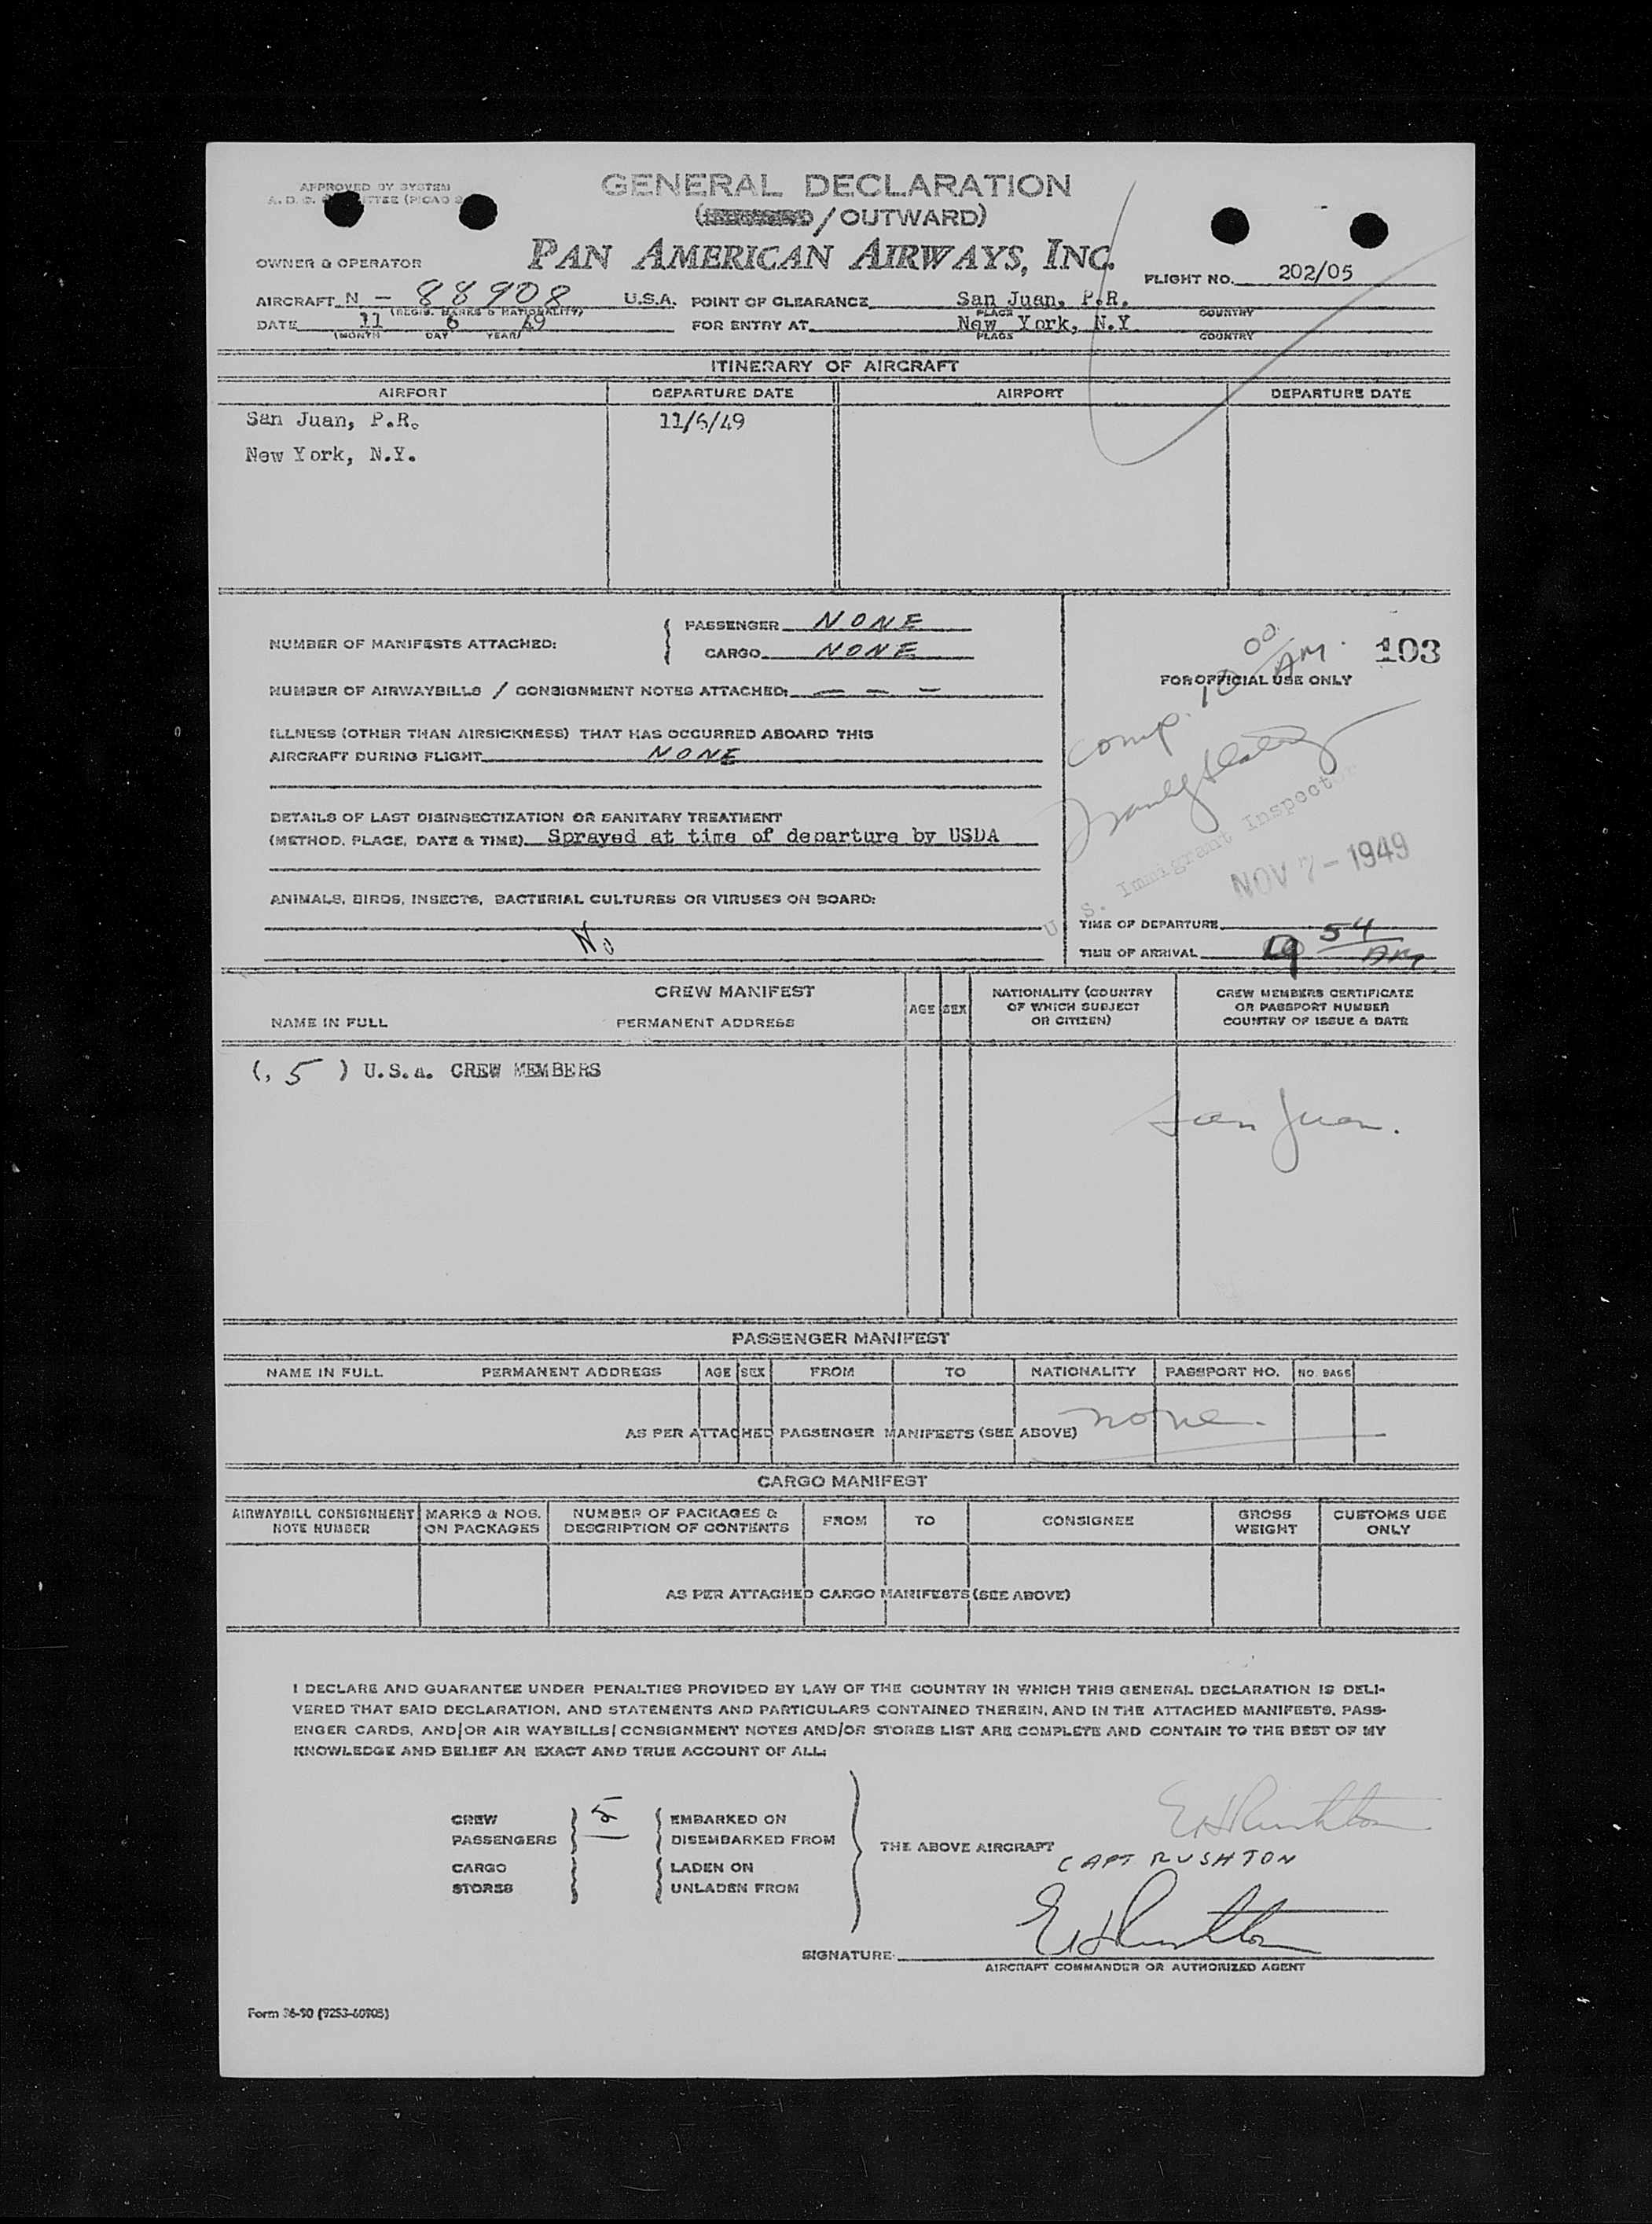 APPROVED BY SYSTEM
GENERAL DECLARATION
/OUTWARD)
PAN AMERICAN AIRWAYS, INC.
OWNER & OPERATOR
FLIGHT NO. 202/05
AIRCRAFT N - 88908 U.S.A. POINT OF CLEARANCE San Juan, P.R.
(REGIS. MARKS & NATIONALITY) PLACE COUNTRY
DATE 11 6 49 FOR ENTRY AT New York, N.Y
(MONTH DAY YEAR) PLACE COUNTRY
ITINERARY OF AIRCRAFT
AIRPORT DEPARTURE DATE AIRPORT DEPARTURE DATE
San Juan, P.R. 11/6/49
New York, N.Y.
NUMBER OF MANIFESTS ATTACHED:
PASSENGER NONE
CARGO NONE
NUMBER OF AIRWAYBILLS / CONSIGNMENT NOTES ATTACHED: — — —
ILLNESS (OTHER THAN AIRSICKNESS) THAT HAS OCCURRED ABOARD THIS
AIRCRAFT DURING FLIGHT NONE
DETAILS OF LAST DISINSECTIZATION OR SANITARY TREATMENT
(METHOD, PLACE, DATE & TIME) Sprayed at time of departure by USDA
ANIMALS, BIRDS, INSECTS, BACTERIAL CULTURES OR VIRUSES ON BOARD:
No
103
FOR OFFICIAL USE ONLY
comp. 10 00 AM.
U. S. Immigrant Inspector
NOV 7 - 1949
TIME OF DEPARTURE
TIME OF ARRIVAL 54 AM
CREW MANIFEST
NAME IN FULL PERMANENT ADDRESS AGE SEX
NATIONALITY (COUNTRY
OF WHICH SUBJECT
OR CITIZEN)
CREW MEMBERS CERTIFICATE
OR PASSPORT NUMBER
COUNTRY OF ISSUE & DATE
( 5 ) U.S.A. CREW MEMBERS
San Juan.
PASSENGER MANIFEST
NAME IN FULL PERMANENT ADDRESS AGE SEX FROM TO NATIONALITY PASSPORT NO. NO. BAGS
AS PER ATTACHED PASSENGER MANIFESTS (SEE ABOVE) none.
CARGO MANIFEST
AIRWAYBILL CONSIGNMENT
NOTE NUMBER
MARKS & NOS.
ON PACKAGES
NUMBER OF PACKAGES &
DESCRIPTION OF CONTENTS
FROM TO CONSIGNEE
GROSS
WEIGHT
CUSTOMS USE
ONLY
AS PER ATTACHED CARGO MANIFESTS (SEE ABOVE)
I DECLARE AND GUARANTEE UNDER PENALTIES PROVIDED BY LAW OF THE COUNTRY IN WHICH THIS GENERAL DECLARATION IS DELI-
VERED THAT SAID DECLARATION, AND STATEMENTS AND PARTICULARS CONTAINED THEREIN, AND IN THE ATTACHED MANIFESTS, PASS-
ENGER CARDS, AND/OR AIR WAYBILLS/CONSIGNMENT NOTES AND/OR STORES LIST ARE COMPLETE AND CONTAIN TO THE BEST OF MY
KNOWLEDGE AND BELIEF AN EXACT AND TRUE ACCOUNT OF ALL:
CREW 5 EMBARKED ON
PASSENGERS — DISEMBARKED FROM
CARGO LADEN ON
STORES UNLADEN FROM
THE ABOVE AIRCRAFT
EH Rushton
CAPT RUSHTON
SIGNATURE EH Rushton
AIRCRAFT COMMANDER OR AUTHORIZED AGENT